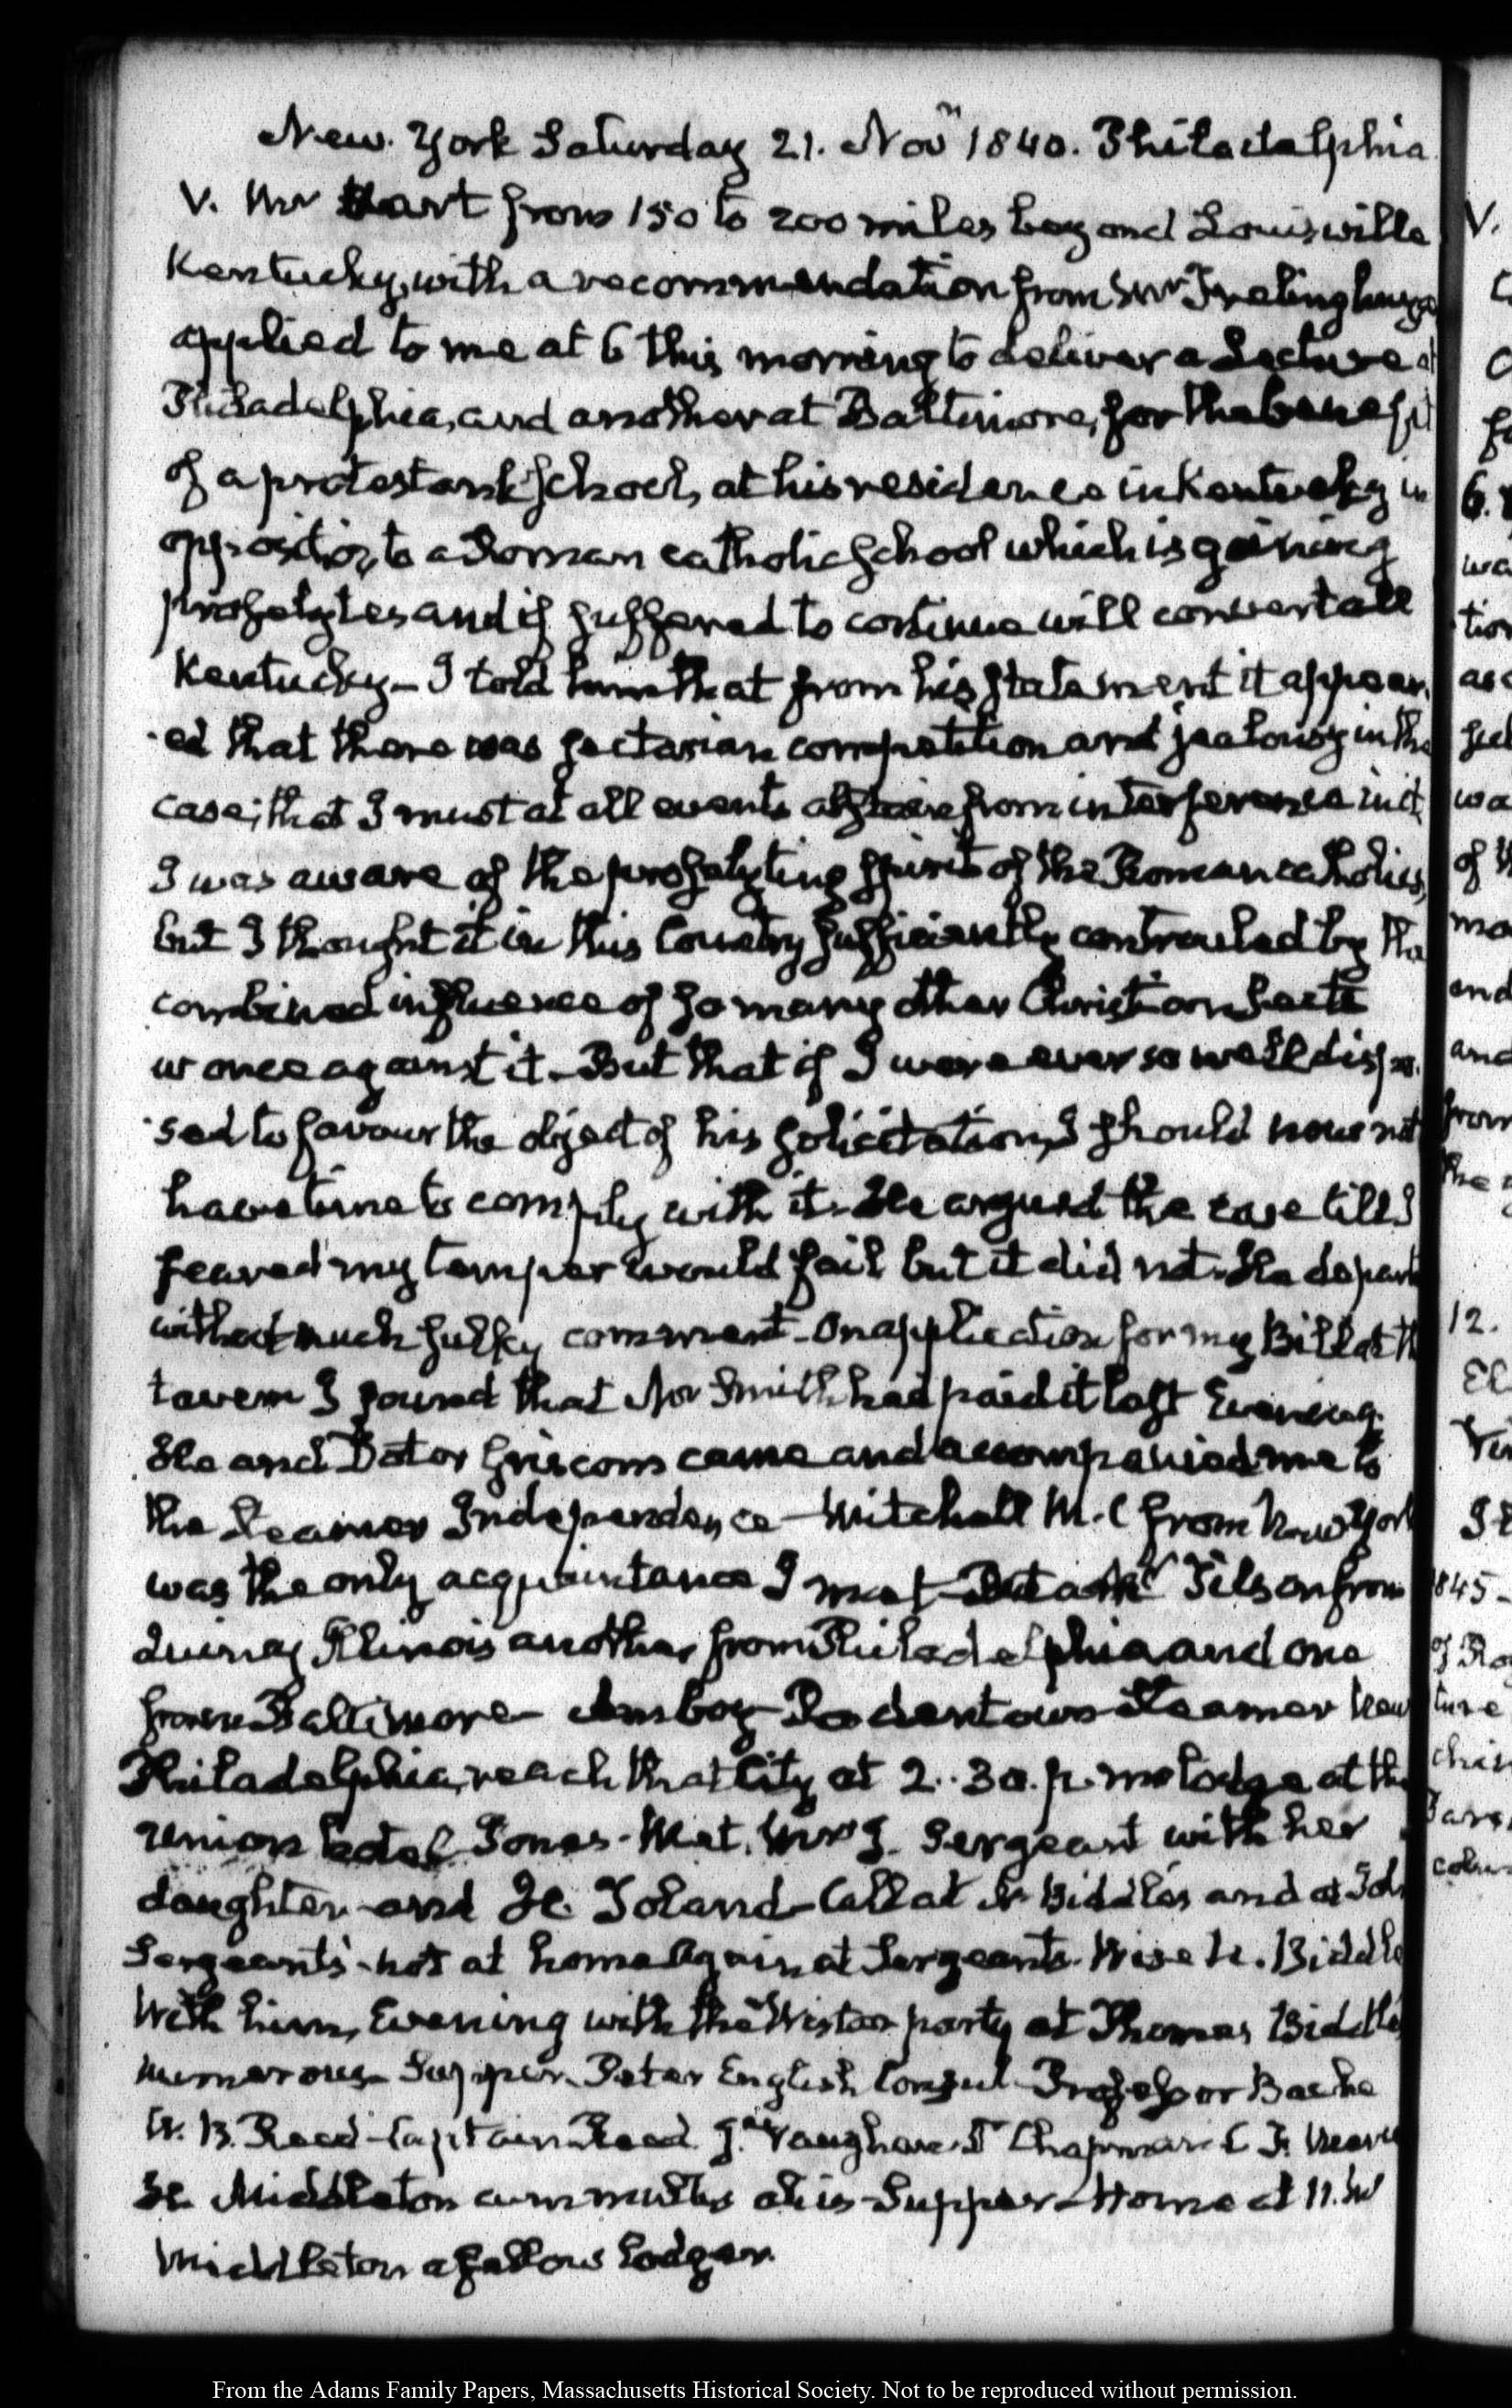 New-York Saturday 21. Novr. 1840. Philadelphia
V. Mr Hart from 150 to 200 miles beyond Louisville
Kentucky, with a recommendation from Mr Frelinghuys
applied to me at 6 this morning to deliver a Lecture at
Philadelphia, and another at Baltimore, for the benefit
of a protestant School, at his residence in Kentucky in
opposition to a Roman catholic School which is gaining
proselytes and if suffered to continue will convert all
Kentucky— I told him that from his statement it appear
-ed that there was sectarian competition and jealousy in the
case; that I must at all events abstain from interference in it
I was aware of the proselyting spirit of the Roman catholics,
but I thought it in this Country sufficiently controuled by the
combined influence of so many other Christian Sects
against it. But that if I were ever so well dispo
-sed to favour the object of his solicitation, I should now not
have time to comply with it. He argued the case till I
feared my temper would fail but it did not. He depart
without much sulky comment— On application for my Bill at th
tavern I found that Mr Smith had paid it last Evening.
He and Doctor Griscom came and accompanied me to
the Steamer Independence— Mitchell M.C. from New York
was the only acquaintance I met— Tilson from
Quincy Illinois another from Philadelphia and one
from Baltimore— Amboy— Bordentown— Steamer New
Philadelphia, reach that City at 2..30. p.m. lodge at the
Union hotel Jones— Met. Mrs J. Sergeant with her
daughter and H. Toland— Call at N. Biddle's and at Joh
Sergeant's— not at home. Again at Sergeant's. Wise N. Biddle
With him, Evening with the Wistar party at Thomas Biddle
numerous— Supper. Peter English Consul— Professor Bache
W. B. Reed— Captain Read. Jn. Vaughan. Dr Chapman C. F.
H. Middleton cum multis aliis— Supper— Home at 11. H
Middleton a fellow lodger.
V.
6.
wa
tion
as
wa
of th
and
and
from
the
12.
845—
of Ro
ture